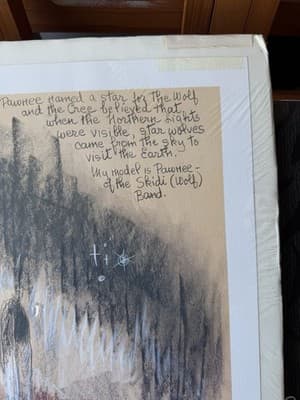 Pawnee named a star for the Wolf
and the Cree believed that
when the Northern Lights
were visible, star wolves
came from the sky to
visit the Earth.
My model is Pawnee -
of the Skidi (Wolf)
Band.